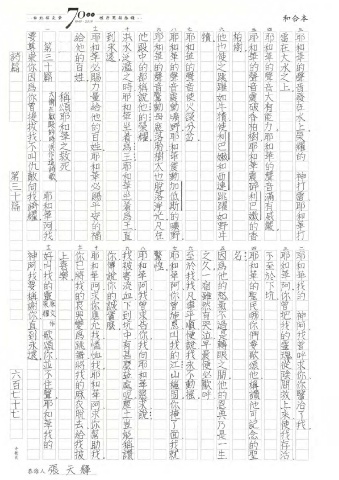 和合本
70
1949-2019
三耶和華的聲音發在水上榮耀的　神打雷耶和華打
雷在大水之上
四耶和華的聲音大有能力耶和華的聲音滿有威嚴
五耶和華的聲音震破香柏樹耶和華震碎利巴嫩的香
柏樹
六他也使之跳躍如牛犢使利巴嫩和西連跳躍如野牛
犢
七耶和華的聲音使火焰分岔
八耶和華的聲音震動曠野耶和華震動加低斯的曠野
九耶和華的聲音驚動母鹿落胎樹木也脫落淨光凡在
他殿中的都稱說他的榮耀
十洪水泛濫之時耶和華坐著為王耶和華坐著為王直
到永遠
耶和華必賜力量給他的百姓耶和華必賜平安的福
給他的百姓
稱頌耶和華之救死
第三十篇　大衛在獻殿的時候作這詩歌　耶和華阿我
要尊崇你因為你曾提拔我不叫仇敵向我誇耀
二耶和華我的　神阿我曾呼求你你醫治了我
三耶和華阿你曾把我的靈魂從陰間救上來使我存活
不至於下坑
四耶和華的聖民哪你們要歌頌他稱讚他可記念的聖
名
五因為他的怒氣不過是轉眼之間他的恩典乃是一生
之久一宿雖然有哭泣早晨便必歡呼
六至於我我凡事平順便說我永不動搖
七耶和華阿你曾施恩叫我的江山穩固你掩了面我就
驚惶
八耶和華阿我曾求告你我向耶和華懇求說
九我被害流血下到坑中有甚麼益處呢塵土豈能稱讚
你傳說你的誠實麼
十耶和華阿求你應允我憐恤我耶和華阿求你幫助我
你已將我的哀哭變為跳舞將我的麻衣脫去給我披
上喜樂
好叫我的靈歌頌你並不住聲耶和華我的
神阿我要稱謝你直到永遠
詩篇
第三十篇
六百七十七
恭錄人 張天輝